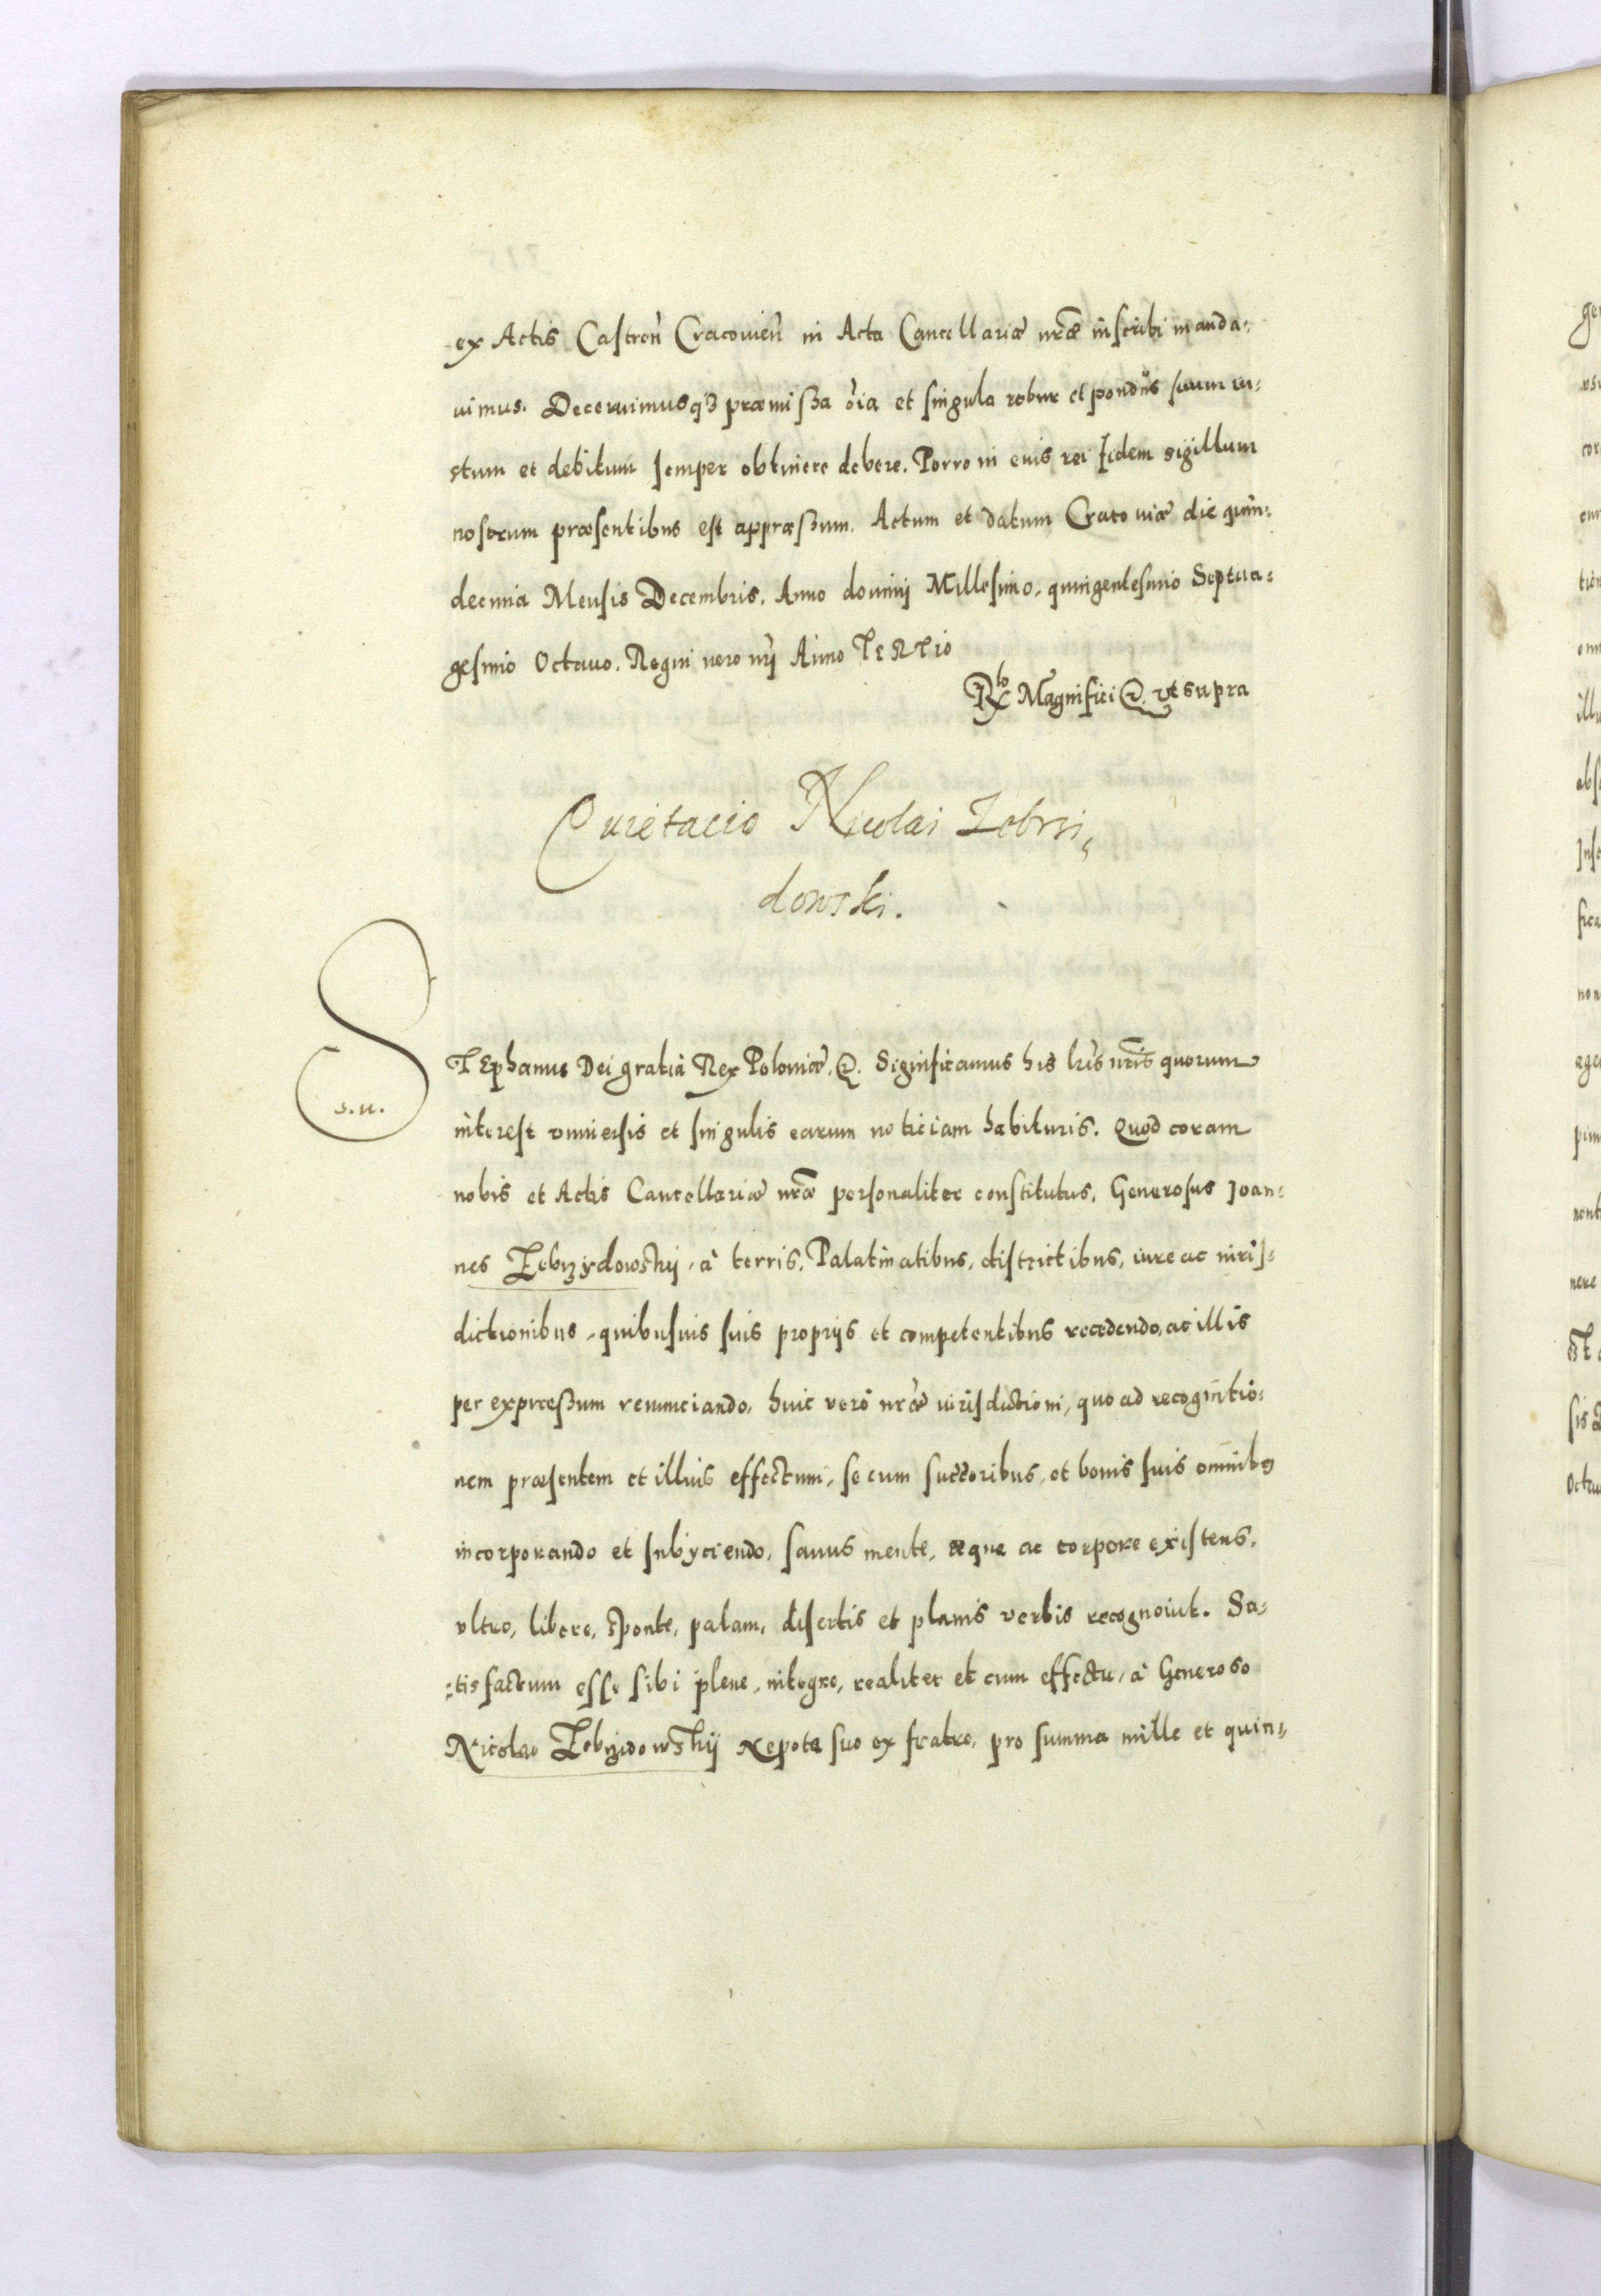 ex Actis Castren̄ Cracouien̄ in Acta Cancellariæ nr̄æ inscribi manda-
uimus. Decernimusq3 præmissa o͞ia et singula robur et pondus suum iu-
stum et debitum semper obtinere debere. Porro in euis rei fidem sigillum
nostrum præsentibus est appræssum. Actum et datum Cracouiæ die quin-
decima Mensis Decembris. Anno dominij Millesimo, quingentesimo Septua-
gesimo Octauo. Regni uero nr̄i Anno TERTIO
Magnifici &. vt supra
Quietacio Nicolai Zebrzi-
dowski.
STEphanus Dei gratia Rex Poloniæ, &. Significamus his lr̄is nr̄is quorum
s.n.
interest vniuersis et singulis earum noticiam habituris. Quod coram
nobis et Actis Cancellariæ nr̄æ personaliter constitutus, Generosus Joan-
nes Zebrzydowskij, à terris, Palatinatibus, districtibus, iure ac iuris-
dictionibus, quibusuis suis proprijs et competentibus recedendo, ac illis
per expressum renunciando, huic verò nr̄æ iurisdictioni, quo ad recognitio-
nem præsentem et illius effectum, se cum succoribus, et bonis suis omnibs
incorporando et subyciendo, sanus mente, æque ac corpore existens,
vltro, libere, sponte, palam, disertis et planis verbis recognouit. Sa-
-tisfactum esse sibi plene, integre, realiter et cum effectu, à Generoso
Nicolao Zebrzidowskij Nepote suo ex fratre, pro summa mille et quin-